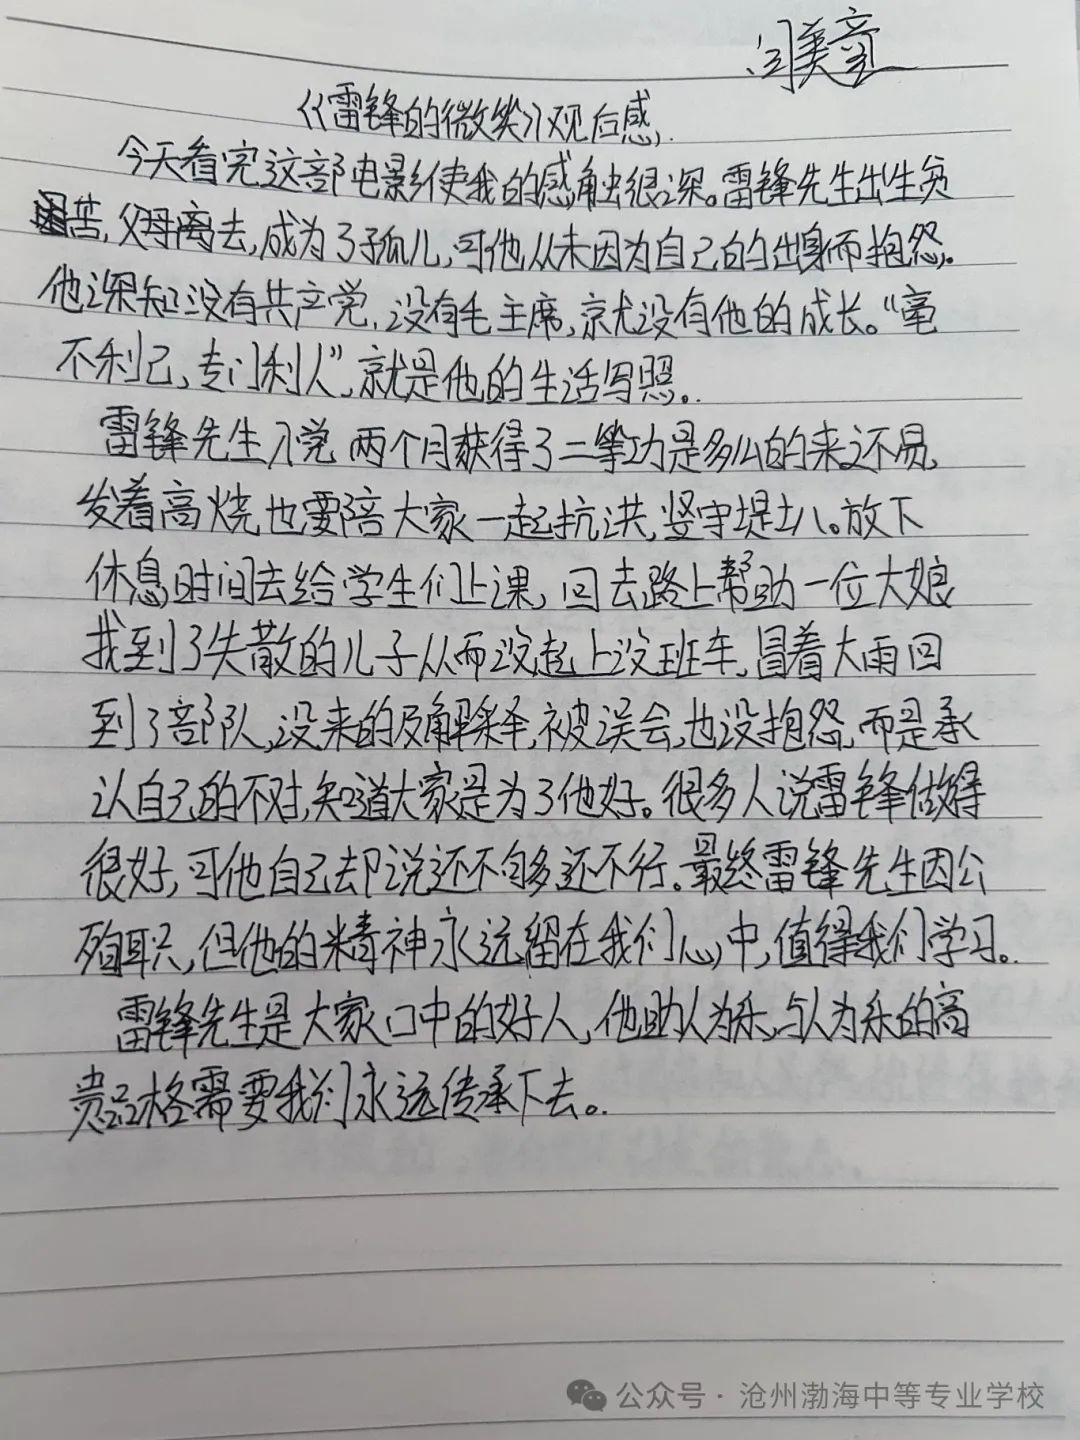 闫美童
《雷锋的微笑》观后感.
今天看完这部电影使我的感触很深。雷锋先生出生贫
苦,父母离去,成为了孤儿,可他从未因为自己的出身而抱怨。
他深知没有共产党,没有毛主席,就没有他的成长。“毫
不利己,专门利人”,就是他的生活写照。
雷锋先生入党两个月获得了二等功是多么的来之不易,
发着高烧也要陪大家一起抗洪,坚守堤坝。放下
休息时间去给学生们上课,回去路上帮助一位大娘
找到了失散的儿子从而没赶上没班车,冒着大雨回
到了部队,没来的及解释,被误会,也没抱怨,而是承
认自己的不对,知道大家是为了他好。很多人说雷锋做得
很好,可他自己却说还不够还不行。最终雷锋先生因公
殉职,但他的精神永远留在我们心中,值得我们学习。
雷锋先生是大家口中的好人,他助人为乐,与人为乐的高
贵品格需要我们永远传承下去。
公众号·沧州渤海中等专业学校